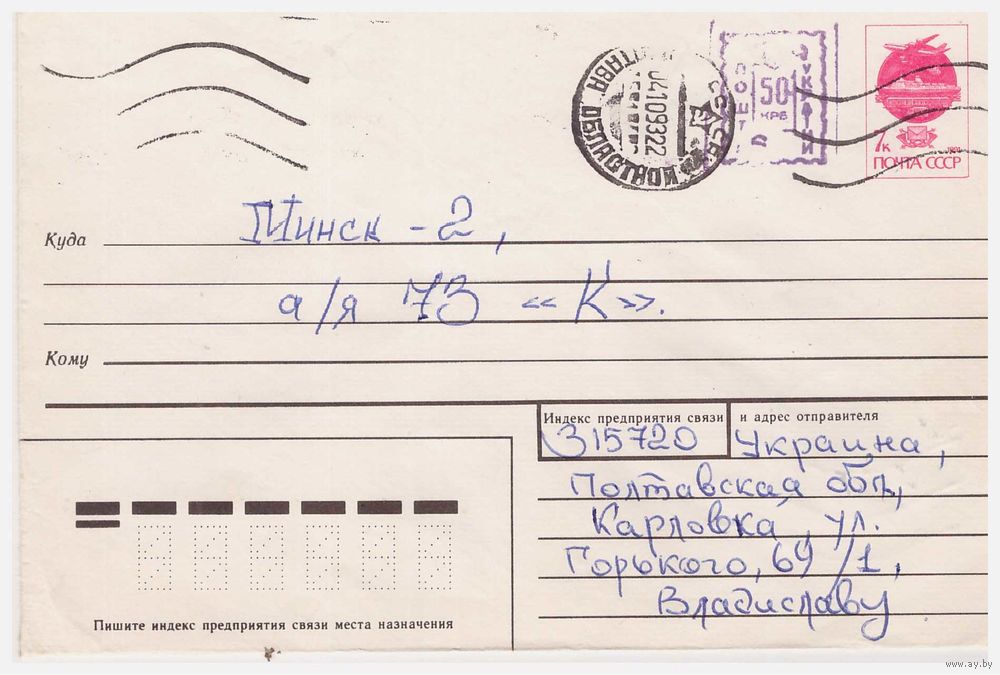 ПОЛТАВА ОБЛАСТНОЙ
04109322
СССР
ПОШТА
50
КРБ
7к
ПОЧТА СССР
Куда Минск - 2,
а/я 73 «К».
Кому
Индекс предприятия связи и адрес отправителя
315720 Украина,
Полтавская обл,
Карловка, ул.
Горького, 69/1,
Владиславу
Пишите индекс предприятия связи места назначения
www.ay.by